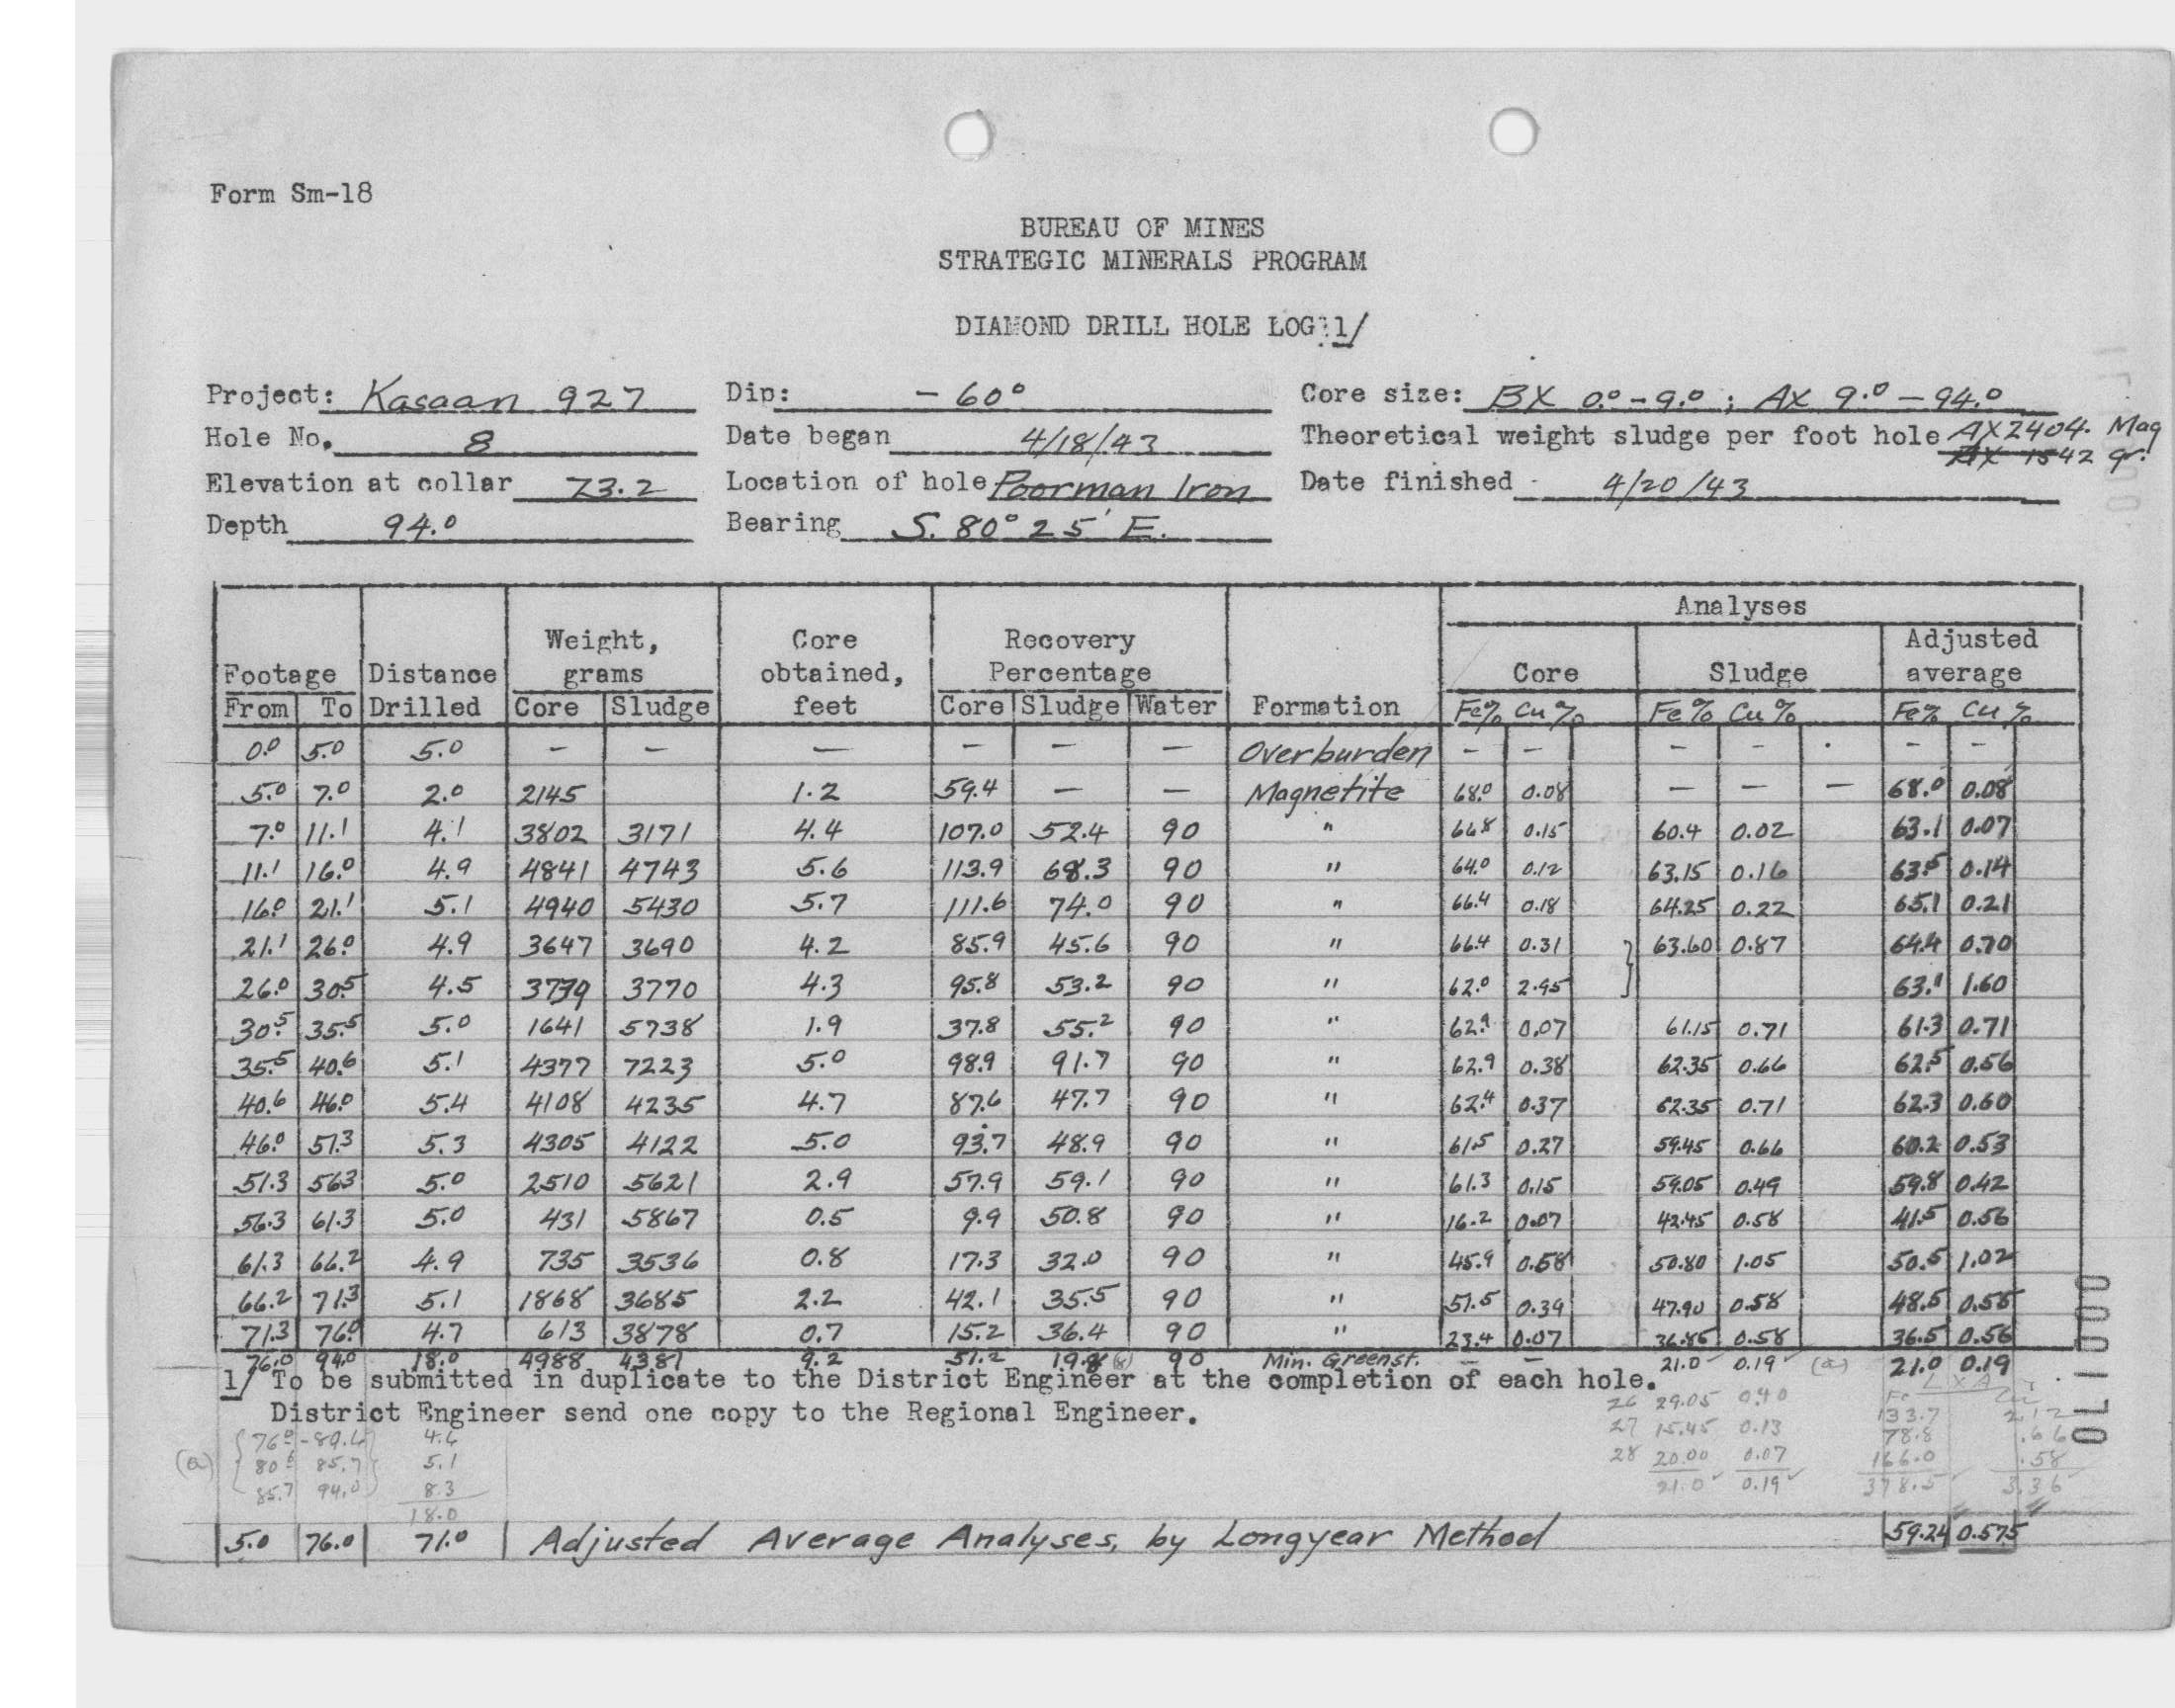 Form Sm-18
BUREAU OF MINES
STRATEGIC MINERALS PROGRAM
DIAMOND DRILL HOLE LOG 1/
Project: Kasaan 927 Dip: -60° Core size: BX 0.0-9.0 ; AX 9.0-94.0
Hole No. 8 Date began 4/18/43 Theoretical weight sludge per foot hole AX 2404. Mag
AX 1542 gr.
Elevation at collar 73.2 Location of hole Poorman Iron Date finished 4/20/43
Depth 94.0 Bearing S. 80° 25' E.
Analyses
Weight, Core Recovery Adjusted
Footage Distance grams obtained, Percentage Core Sludge average
From To Drilled Core Sludge feet Core Sludge Water Formation Fe% Cu% Fe% Cu% Fe% Cu%
0.0 5.0 5.0 - - - - - - Overburden - - - - - -
5.0 7.0 2.0 2145 1.2 59.4 - - Magnetite 68.0 0.08 - - - 68.0 0.08
7.0 11.1 4.1 3802 3171 4.4 107.0 52.4 90 " 66.8 0.15 60.4 0.02 63.1 0.07
11.1 16.0 4.9 4841 4743 5.6 113.9 68.3 90 " 64.0 0.12 63.15 0.16 63.5 0.14
16.0 21.1 5.1 4940 5430 5.7 111.6 74.0 90 " 66.4 0.18 64.25 0.22 65.1 0.21
21.1 26.0 4.9 3647 3690 4.2 85.9 45.6 90 " 66.4 0.31 } 63.60 0.87 64.4 0.70
26.0 30.5 4.5 3779 3770 4.3 95.8 53.2 90 " 62.0 2.95 63.1 1.60
30.5 35.5 5.0 1641 5738 1.9 37.8 55.2 90 " 62.9 0.07 61.15 0.71 61.3 0.71
35.5 40.6 5.1 4377 7223 5.0 98.9 91.7 90 " 62.9 0.38 62.35 0.66 62.5 0.56
40.6 46.0 5.4 4108 4235 4.7 87.6 47.7 90 " 62.4 0.37 62.35 0.71 62.3 0.60
46.0 51.3 5.3 4305 4122 5.0 93.7 48.9 90 " 61.5 0.27 59.45 0.66 60.2 0.53
51.3 56.3 5.0 2510 5621 2.9 57.9 59.1 90 " 61.3 0.15 59.05 0.49 59.8 0.42
56.3 61.3 5.0 431 5867 0.5 9.9 50.8 90 " 16.2 0.07 42.45 0.58 41.5 0.56
61.3 66.2 4.9 735 3536 0.8 17.3 32.0 90 " 45.9 0.58 50.80 1.05 50.5 1.02
66.2 71.3 5.1 1868 3685 2.2 42.1 35.5 90 " 51.5 0.39 47.90 0.58 48.5 0.55
71.3 76.0 4.7 613 3878 0.7 15.2 36.4 90 " 23.4 0.07 36.85 0.58 36.5 0.56
76.0 94.0 18.0 4988 4381 9.2 51.2 19.8 90 Min. Greenst. - - 21.0 0.19 (a) 21.0 0.19
1/ To be submitted in duplicate to the District Engineer at the completion of each hole.
District Engineer send one copy to the Regional Engineer.
L x A
Fe Cu
26 29.05 0.40 133.7 2.12
27 15.45 0.13 78.8 .66
28 20.00 0.07 166.0 .58
21.0 0.19 378.5 3.36
(a) 76.0 - 80.6 4.6
80.6 85.7 5.1
85.7 94.0 8.3
18.0
5.0 76.0 71.0 Adjusted Average Analyses, by Longyear Method 59.24 0.575
001700